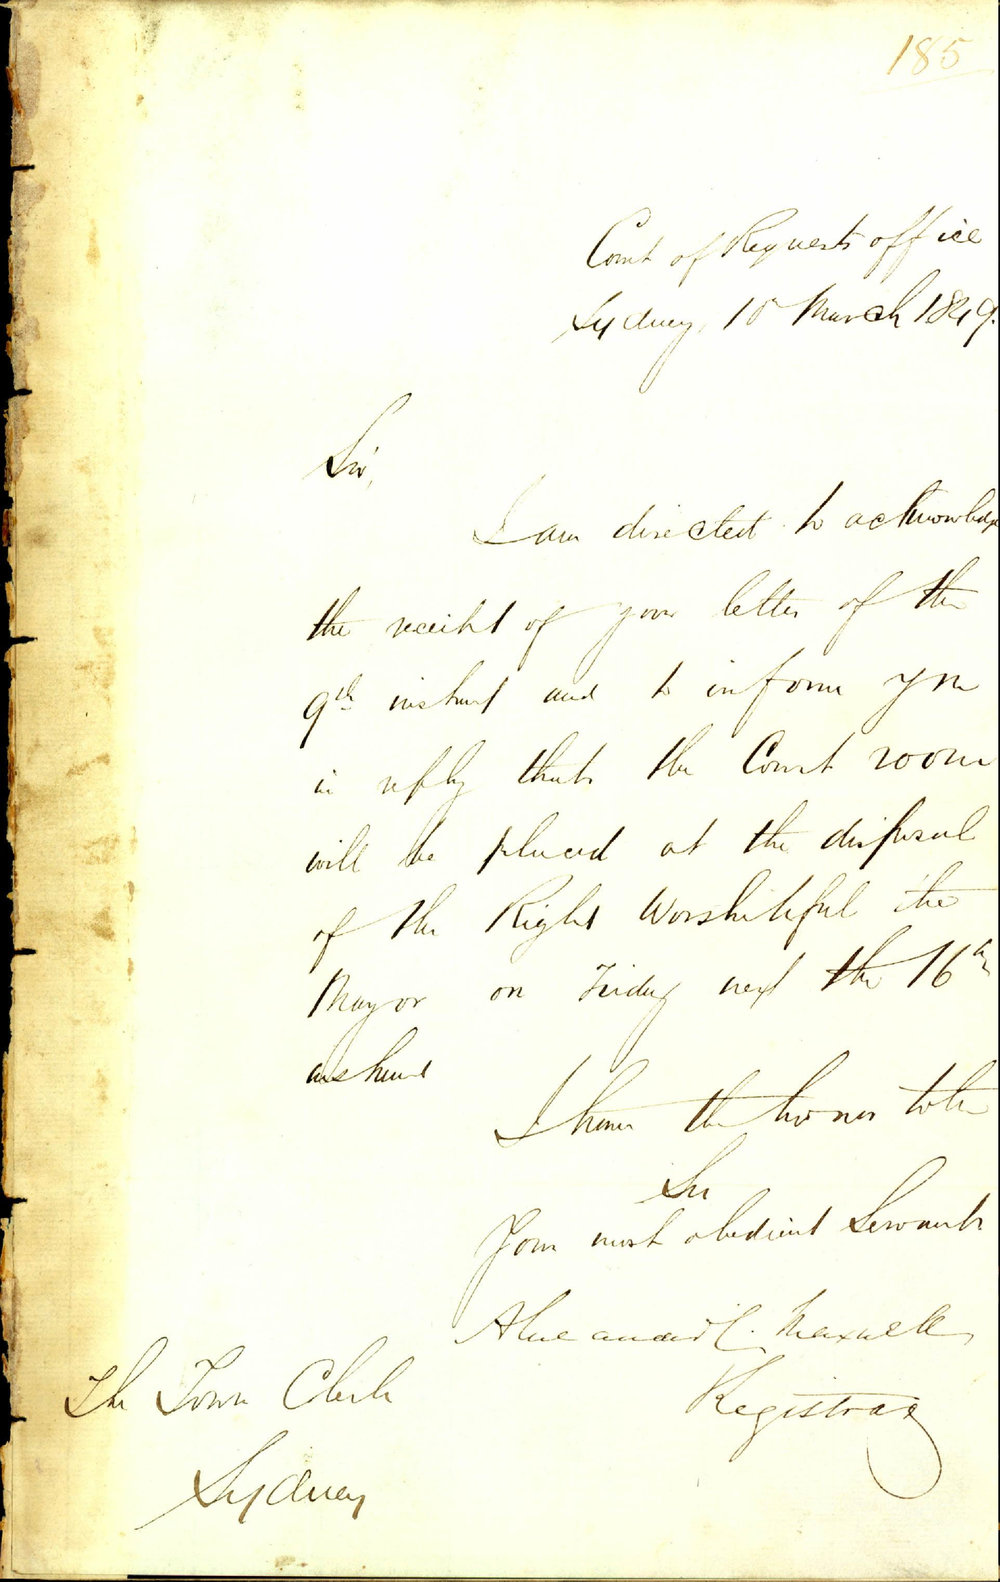 185
Court of Requests office
Sydney, 10 March 1849.
Sir,
I am directed to acknowledge
the receipt of your letter of the
9th instant and to inform you
in reply that the Court room
will be placed at the disposal
of the Right Worshipful the
Mayor on Friday next the 16th
instant
I have the honor to be
Sir
Your most obedient Servant
Maxwell
Registrar
The Town Clerk
Sydney